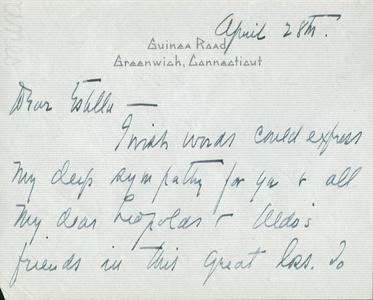 April 28th.
Guinea Road
Greenwich, Connecticut
Dear Estella —
I wish words could express
my deep sympathy for you & all
my dear Leopolds & Aldo's
friends in this great loss. To